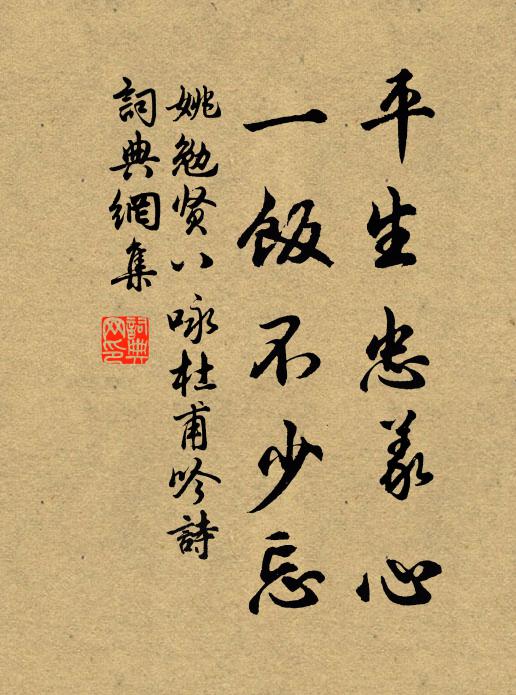 平生忠義心
一飯不少忘
姚勉贤八咏杜甫吟詩
詞典網集
詞典網印